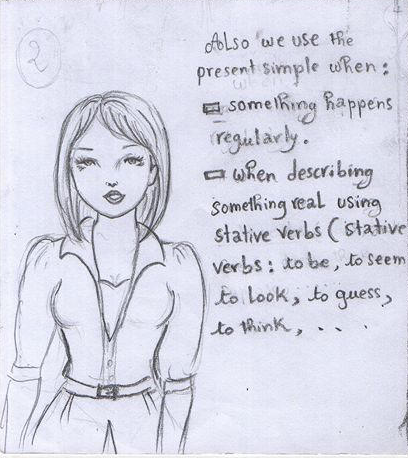 2
Also we use the
present simple when :
something happens
regularly.
when describing
something real using
stative verbs ( stative
verbs : to be, to seem
to look, to guess,
to think, . . .